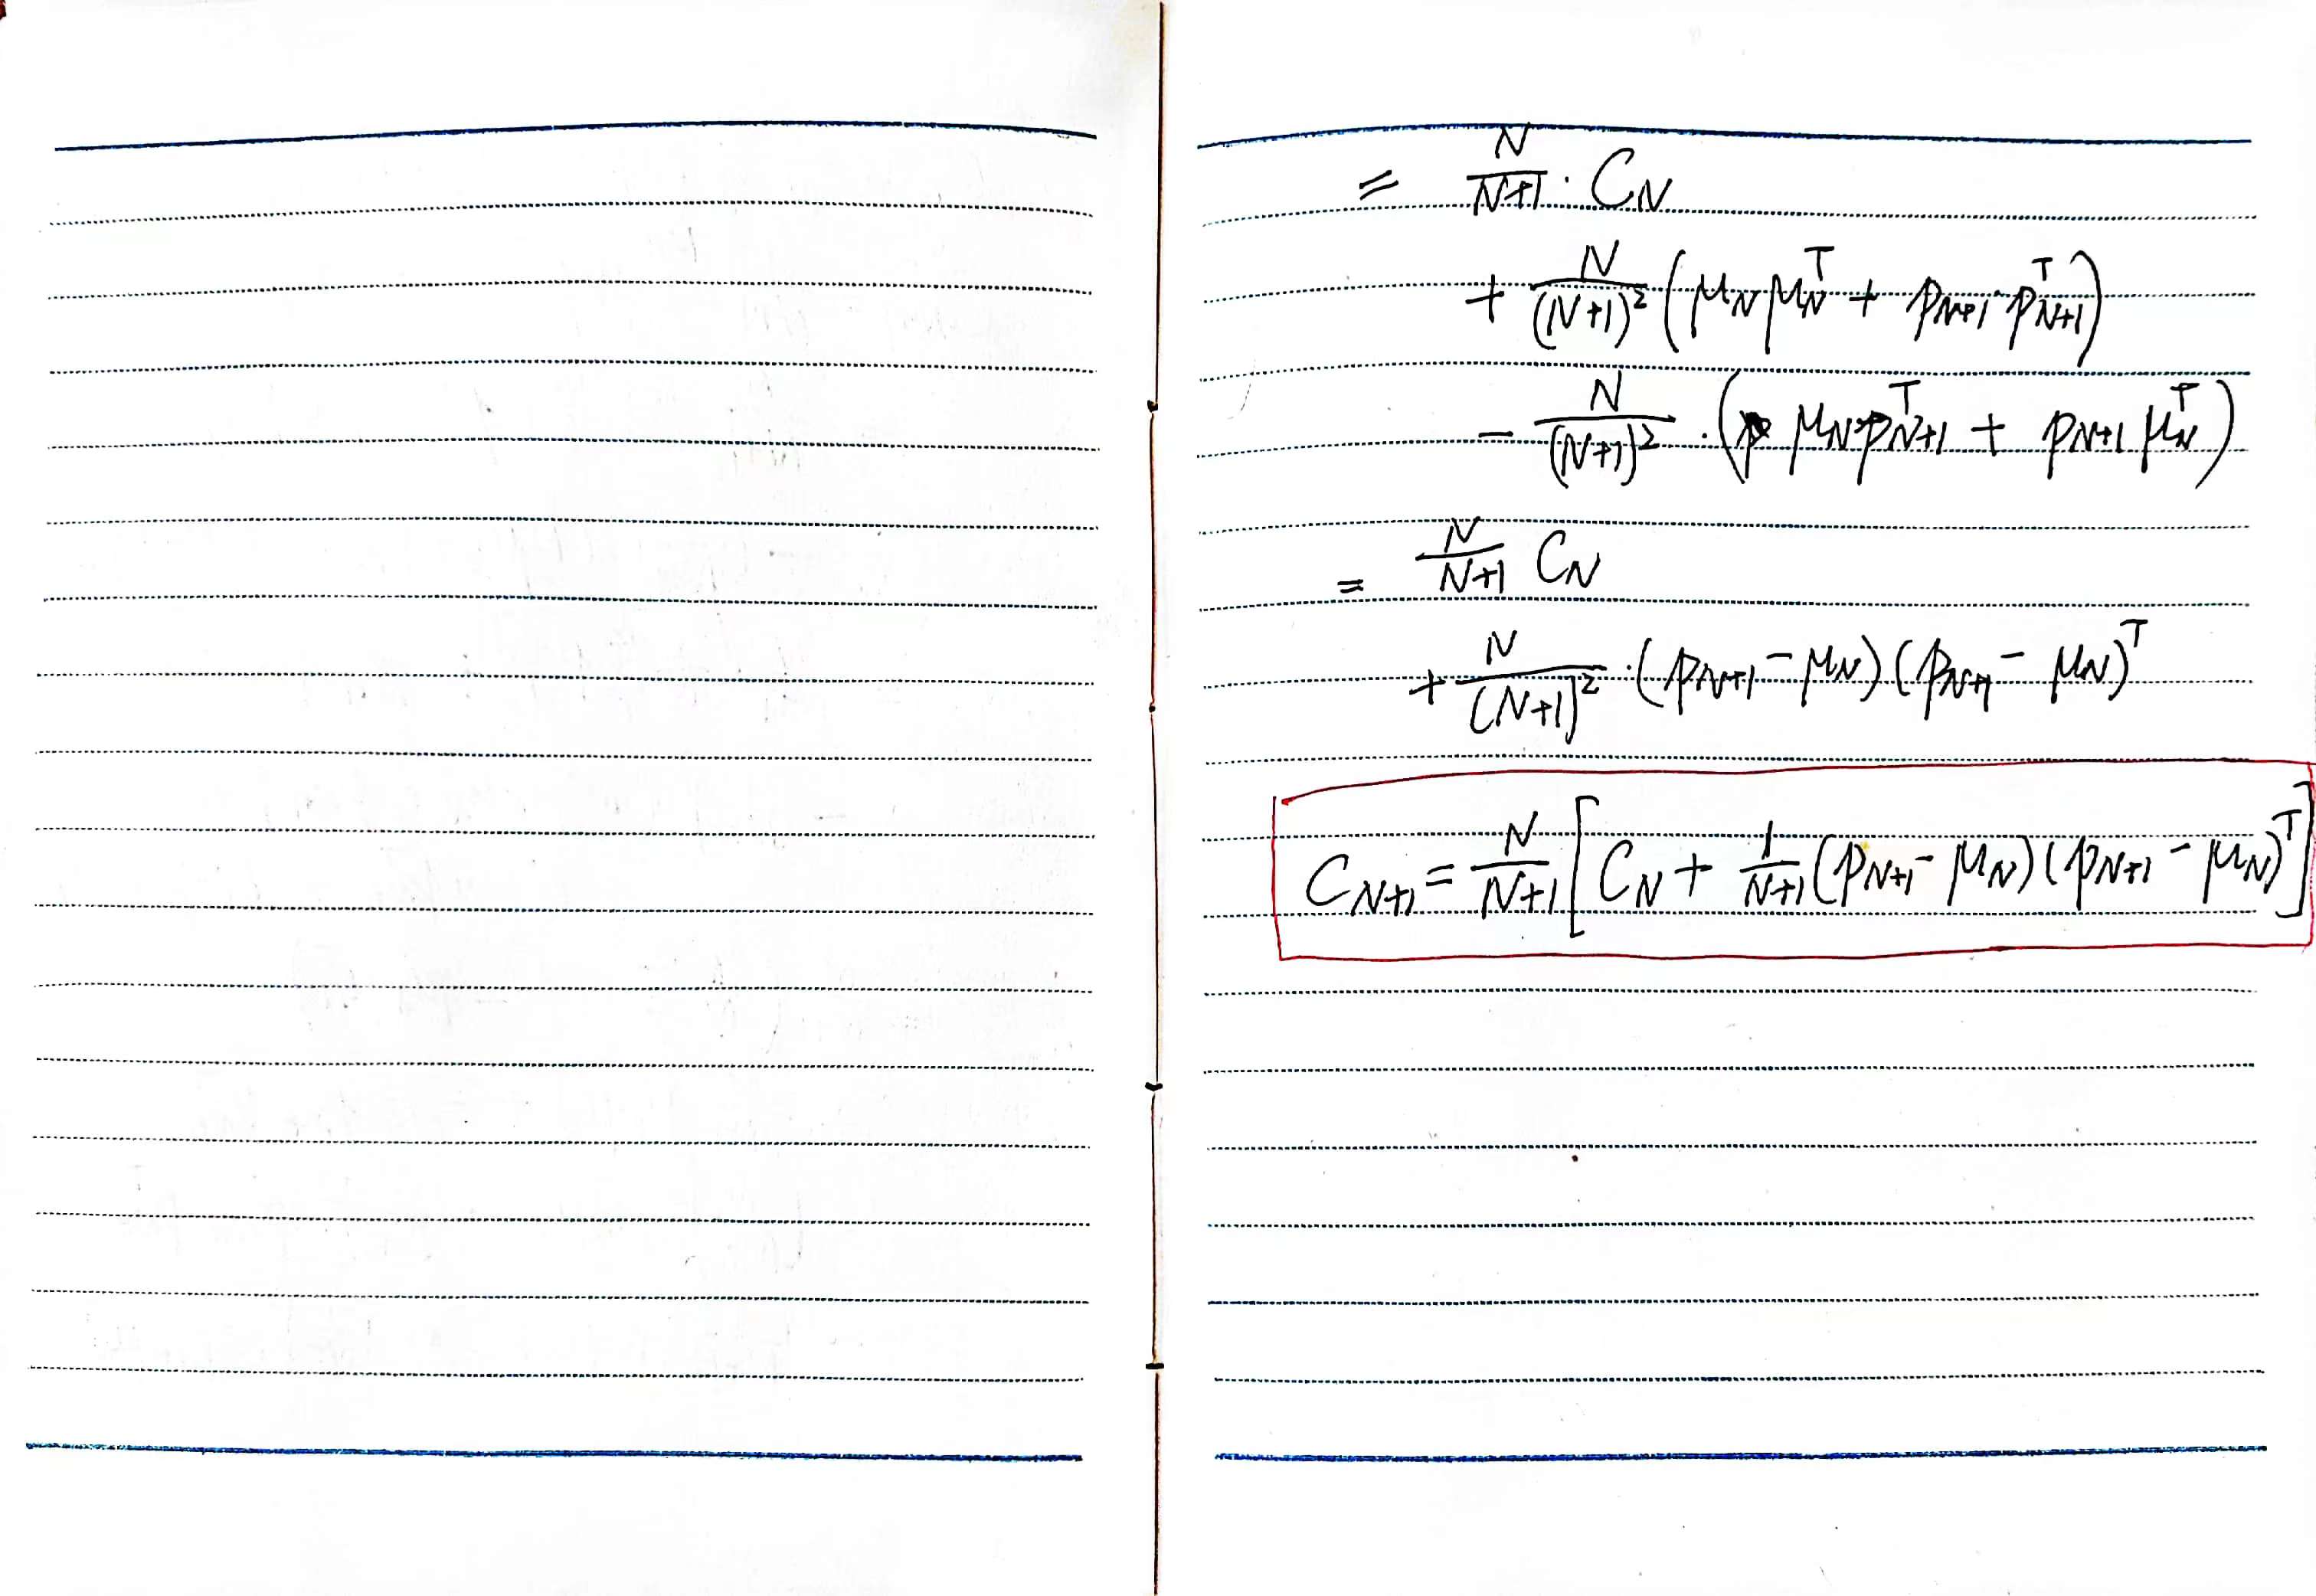 = N/(N+1) · C_N
+ N/(N+1)² (μ_N μ_N^T + p_{N+1} · p_{N+1}^T)
− N/(N+1)² · (μ_N p_{N+1}^T + p_{N+1} μ_N^T)
= N/(N+1) C_N
+ N/(N+1)² · (p_{N+1} − μ_N)(p_{N+1} − μ_N)^T
C_{N+1} = N/(N+1) [C_N + 1/(N+1) (p_{N+1} − μ_N)(p_{N+1} − μ_N)^T]